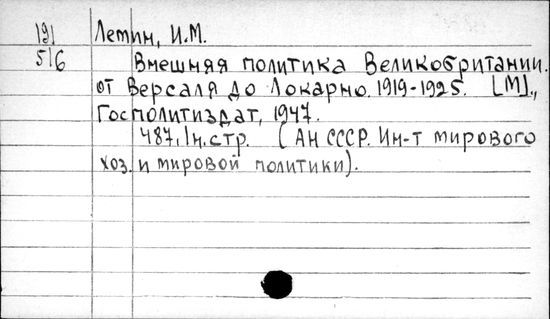 191 Лемин, И.М.
516 Внешняя политика Великобритании.
от Версаля до Локарно. 1919-1925. [М].,
Госполитиздат, 1947.
487, 1н. стр. (АН СССР. Ин-т мирового
хоз. и мировой политики).